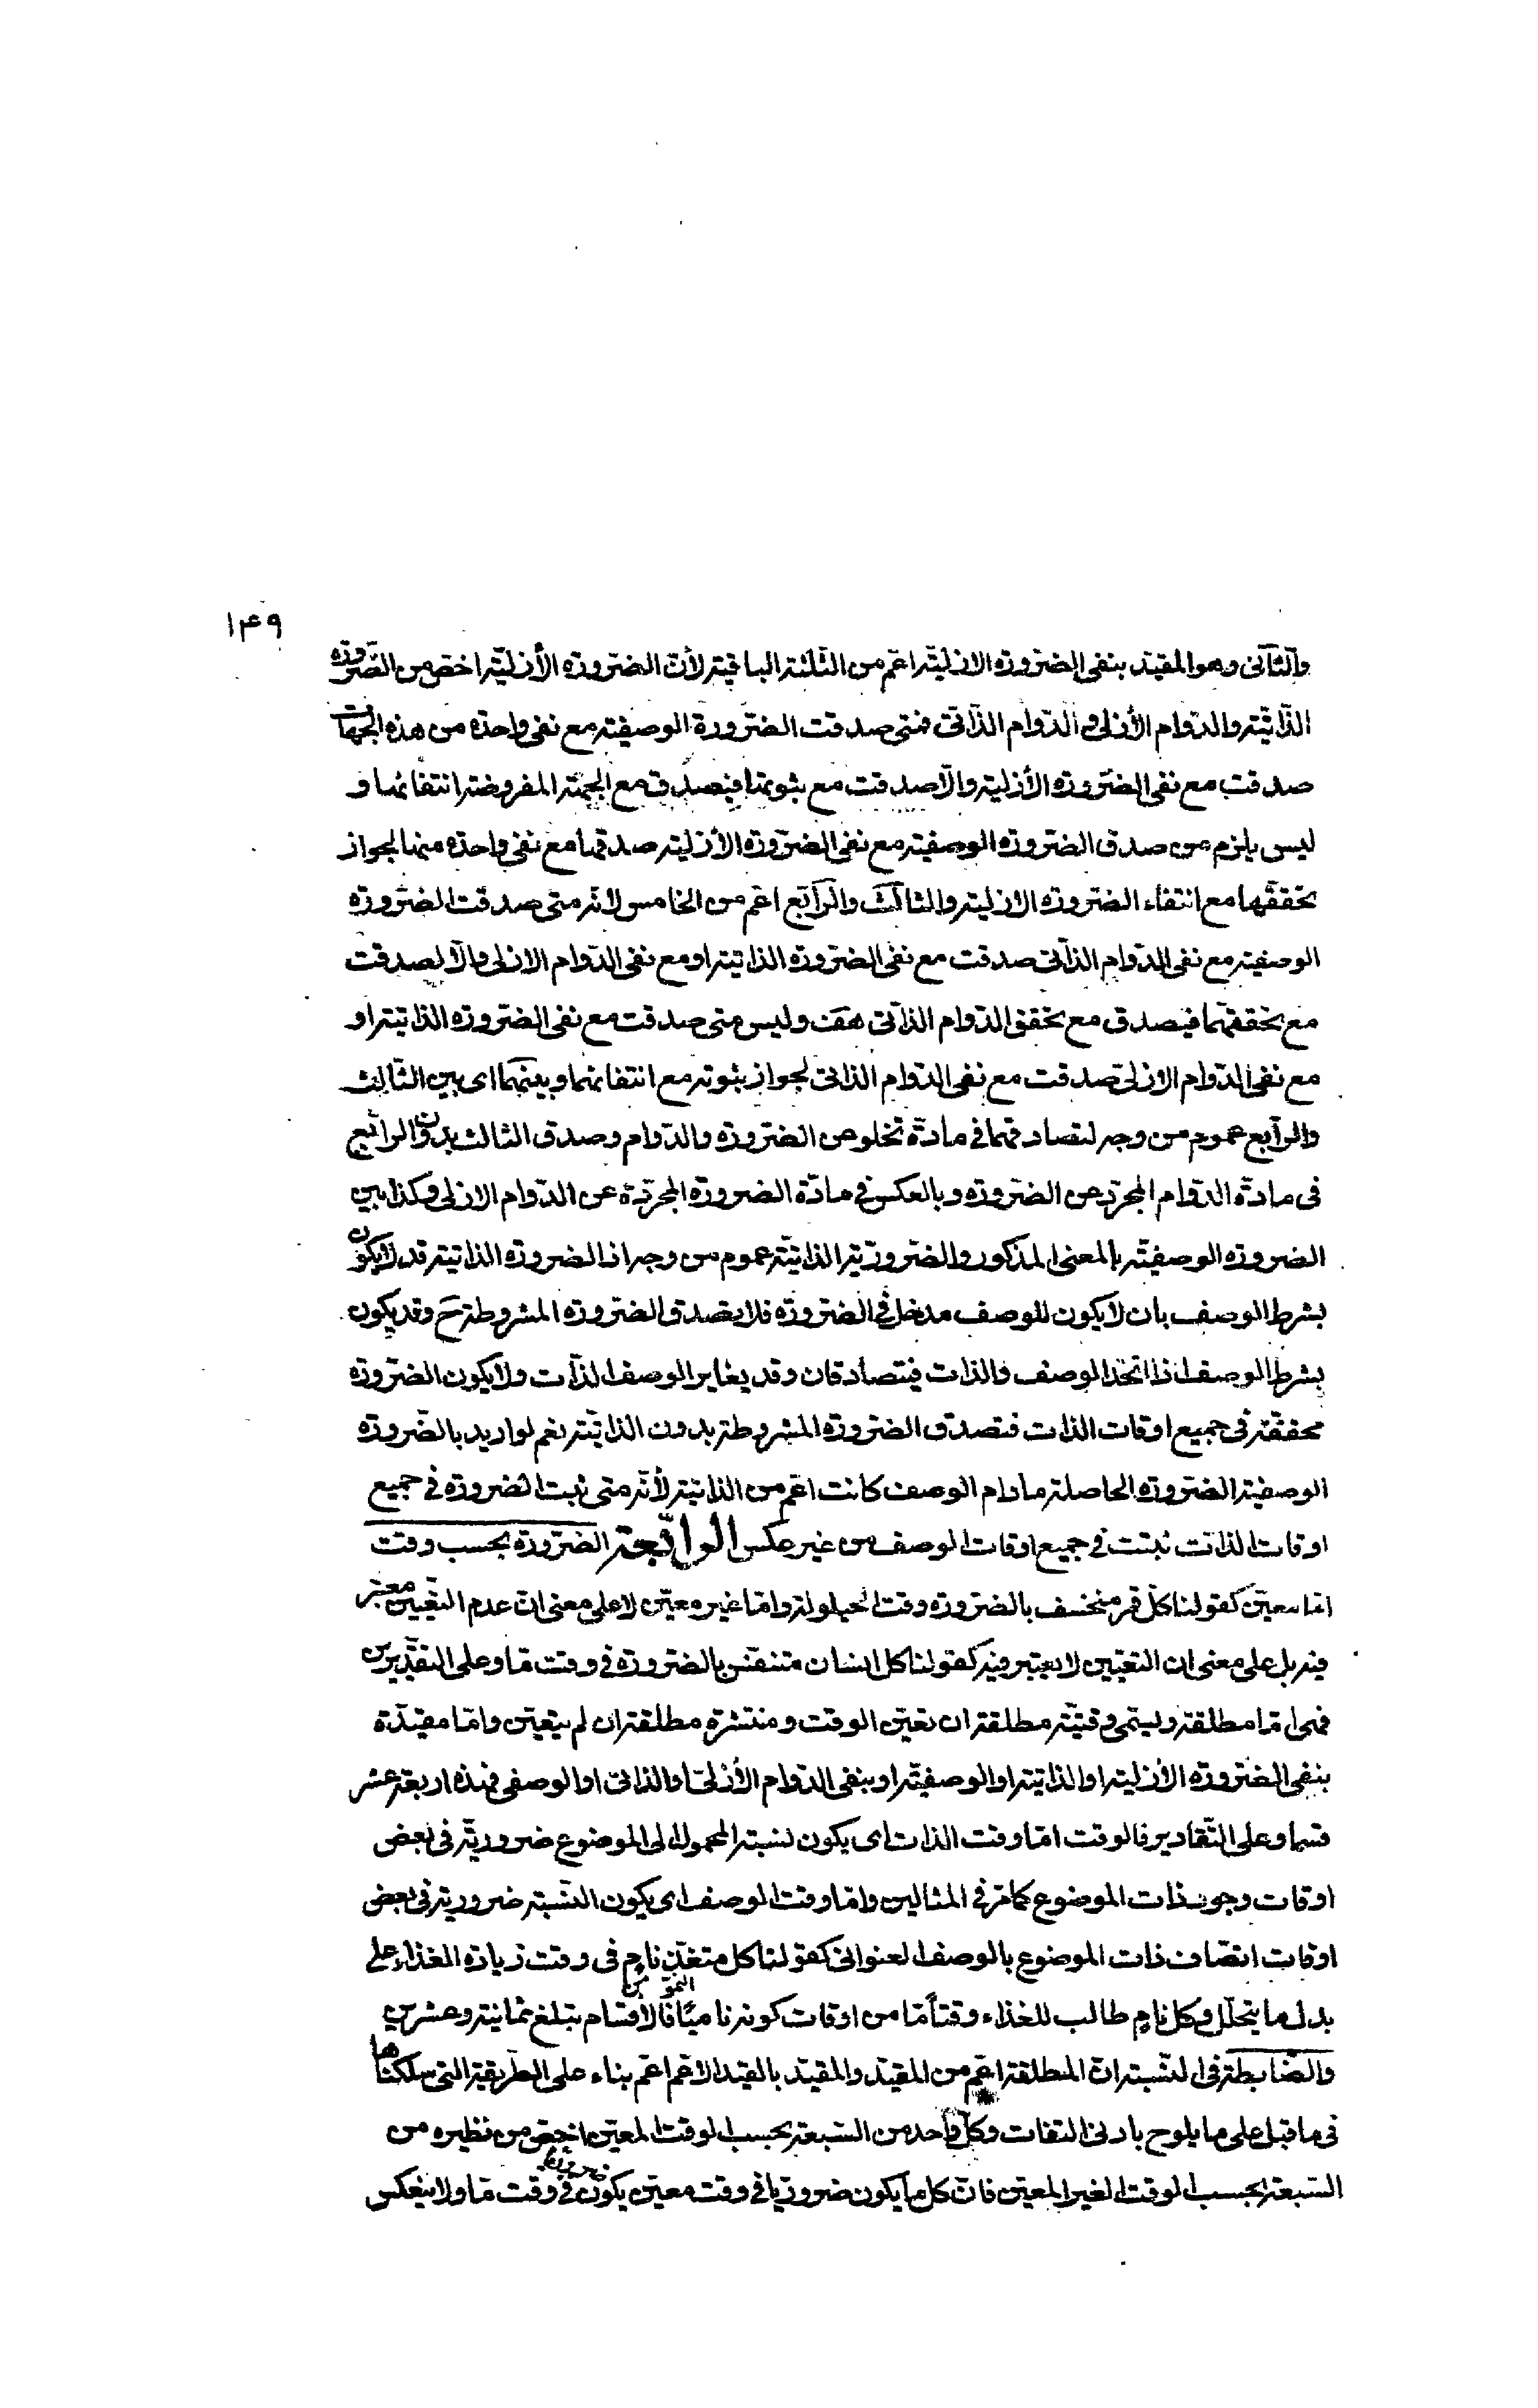 ١٤٩
والثّانى وهو المقيّد بنفى الضّرورة الازليّة اعمّ من الثّلثة الباقية لأنّ الضّرورة الأزليّة اخصّ من الضّرورة
الذّاتيّة والدّوام الأزلى والدّوام الذّاتى فمتى صدقت الضّرورة الوصفيّة مع نفى واحدة من هذه الجهات
صدقت مع نفى الضّرورة الأزلية والّا صدقت مع ثبوتها فيصدق مع الجهة المفروضة انتفائها و
ليس يلزم من صدق الضّرورة الوصفيّة مع نفى الضّرورة الأزلية صدقها مع نفى واحدة منها لجواز
تحقّقها مع انتفاء الضّرورة الازلية والثالث والرّابع اعمّ من الخامس لانّه متى صدقت الضّرورة
الوصفية مع نفى الدّوام الذّاتى صدقت مع نفى الضّرورة الذاتية او مع نفى الدّوام الازلى والّا لصدقت
مع تحققهما فيصدق مع تحقق الدّوام الذاتى هف وليس متى صدقت مع نفى الضّرورة الذاتية او
مع نفى الدّوام الازلى صدقت مع نفى الدّوام الذاتى لجواز ثبوته مع انتفائهما وبينهما اى بين الثّالث
والرّابع عموم من وجه لتصادقهما فى مادّة تخلو عن الضّرورة والدّوام وصدق الثالث بدون الرابع
فى مادّة الدّوام المجرّد عن الضّرورة وبالعكس فى مادّة الضرورة المجرّدة عن الدّوام الازلى وكذا بين
الضرورة الوصفيّة بالمعنى المذكور والضّروريّة الذاتيّة عموم من وجه اذ الضرورة الذاتية قد لايكون
بشرط الوصف بان لا يكون للوصف مدخل فى الضّرورة فلا يصدق الضّرورة المشروطة ح وقد يكون
بشرط الوصف اذا اتّحد الوصف والذات فيتصادقان وقد يغاير الوصف الذّات ولا يكون الضّرورة
محققّة فى جميع اوقات الذات فتصدق الضّرورة المشروطة بدون الذاتيّة نعم لو اريد بالضّرورة
الوصفية الضّرورة الحاصلة مادام الوصف كانت اعمّ من الذاتية لأنّه متى ثبت الضرورة فى جميع
اوقات الذات ثبتت فى جميع اوقات الوصف من غير عكس الرابعة الضّرورة بحسب وقت
امّا معيّن كقولنا كلّ قمر منخسف بالضّرورة وقت الحيلولة وامّا غير معيّن لا على معنى انّ عدم التعيين معتبر
فيه بل على معنى ان التعيين لا يعتبر فيه كقولنا كل انسان متنفّس بالضّرورة فى وقت مّا وعلى التقديرين
فهى امّا مطلقة ويسمّى وقتيّة مطلقة ان تعيّن الوقت ومنتشرة مطلقة ان لم يتعيّن وامّا مقيّدة
بنفى الضّرورة الازلية او الذاتية او الوصفيّة او بنفى الدّوام الأزلى او الذاتى او الوصفى فهذه اربعة عشر
قسما وعلى التّقادير فالوقت امّا وقت الذات اى يكون نسبة المحمول الى الموضوع ضروريّة فى بعض
اوقات وجود ذات الموضوع كما مرّ فى المثالين وامّا وقت الوصف اى يكون النّسبة ضرورية فى بعض
اوقات اتّصاف ذات الموضوع بالوصف العنوانى كقولنا كل متغذّ نامٍ فى وقت زيادة الغذاء على
بدل ما يتحلّل وكل نامٍ طالب للغذاء وقتاً مّا من اوقات كونه ناميًا فالاقسام تبلغ ثمانية وعشرين
والضّابطة فى النّسبة انّ المطلقة اعمّ من المقيّد والمقيّد بالقيد الاعمّ اعمّ بناء على الطّريقة التى سلكناها
فى ما قبل على ما يلوح بادنى التفات وكلّ واحد من السّبعة بحسب الوقت المعيّن اخصّ من نظيره من
السّبعة بحسب الوقت الغير المعيّن فانّ كل ما يكون ضروريّا فى وقت معيّن يكون ضروريا فى وقت مّا ولا ينعكس